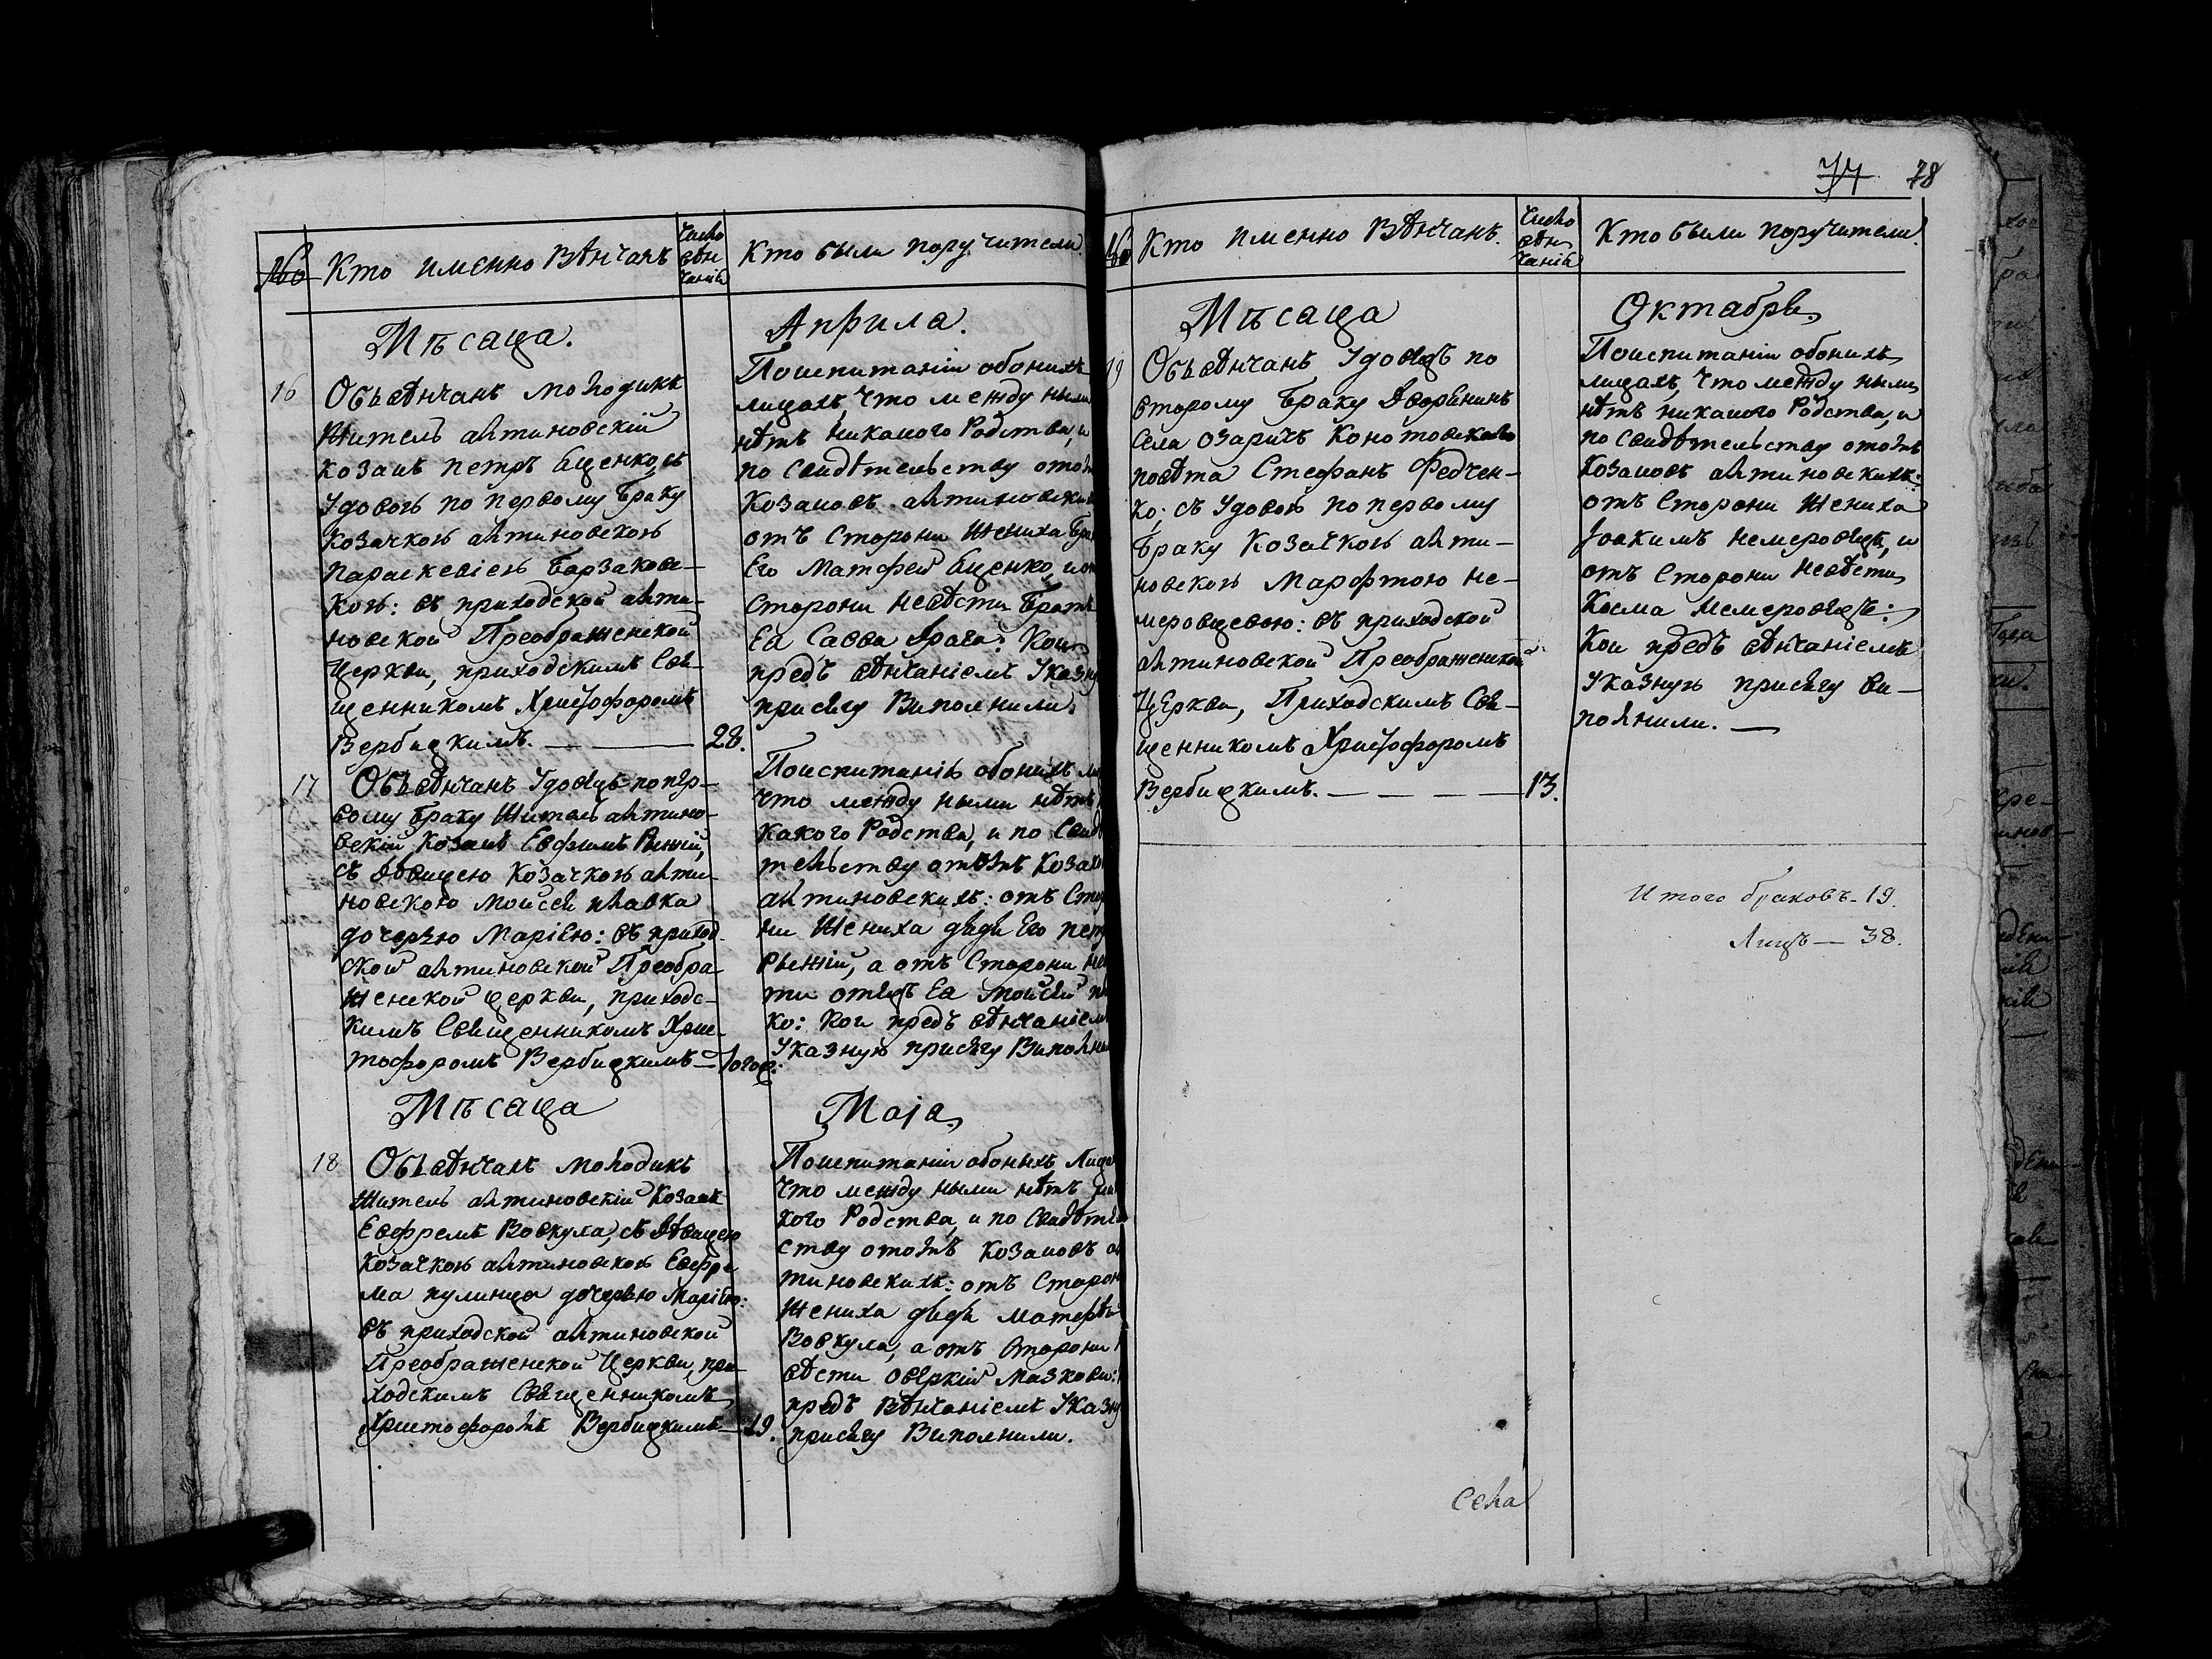 74 78
№ Кто именно вѣнчанъ
Число вѣнчанія
Кто были поручители.
Мѣсаца. Априла.
16 Обьвѣнчанъ молодикъ
житель алтиновскій
козакъ петръ Яценко съ
Удовою по первому браку
козачкою алтиновскою
параскевіею Борзаков-
кою: въ приходской алти-
новской Преображенской
Церкви, приходскимъ Свя-
щенникомъ Христофоромъ
Вербицкимъ. — 28.
Поиспитаніи обоихъ
лицахъ, что между ными
нѣтъ никакого Родства, и
по свидѣтельству
козаковъ алтиновских
отъ Сторони Жениха
Его Матфей Яценко,
Сторони невѣсти братъ
Ея Савва Драга: кои
предъ вѣнчаніемъ Указну
присягу Виполнили.
17 Обьвѣнчанъ Удовцъ попер-
вому браку житель алтино-
вскій козакъ Евфимъ Рижій,
съ дѣвицею козачкою алти-
новскою моисея плавка
дочерью Маріею: въ приход-
ской алтиновской Преобра-
женской церкви, приходс-
кимъ Священникомъ Хрис-
тофоромъ Вербицкимъ —
Поиспитанію обоихъ
что между ными нѣтъ
какого Родства, и по Свидѣ
тельству козаков
алтиновскихъ: отъ Сторо
ни жениха дядя Его петр
Рыжій, а отъ Сторони невѣс
ти отецъ Ея моисей пла
ко: кои предъ вѣнчаніем
Указную присягу Виполни
Мѣсаца Маја
18 Обьвѣнчанъ молодикъ
житель алтиновскій козакъ
Евфремъ Вовкула, съ дѣвицею
козачкою алтиновскою Евфре
ма кулинца дочерью Маріею:
въ приходской алтиновской
Преображенской Церкви, при-
ходскимъ Священникомъ
Христофоромъ Вербицкимъ — 19.
Поиспитаніи обоныхъ Лица
что между ными нѣтъ ни
кого Родства, и по Свидѣтел
ству козаковъ ал
тиновскихъ: отъ Сторон
жениха дядя
Вовкула, а отъ Сторони
вѣсти
предъ вѣнчаніемъ Указну
присягу Виполнили.
№ Кто именно вѣнчанъ.
Число вѣнчанія
Кто были поручители.
Мѣсаца Октабря
19 Обьвѣнчанъ Удовцъ по
второму браку Дворянинъ
села озаричъ конотопскаго
повѣта Стефанъ Федчен-
ко; съ Удовою по первому
браку козачкою алти-
новскою Марфтою не-
меровцевою: въ приходской
алтиновской Преображенской
Церкви, Приходскимъ Свя-
щенникомъ Христофоромъ
Вербицкимъ. — — — — 13.
Поиспитаніи обоихъ
лицахъ, что между ными
нѣтъ никакого Родства, и
по свидѣтельству
козаковъ алтиновскихъ:
отъ Сторони жениха
Јоакимъ немеровецъ, и
отъ Сторони невѣсти
Косма немеровецъ:
кои предъ вѣнчаніемъ
Указную присягу ви-
полнили. —
Итого браковъ - 19.
Лицъ — 38.
Села